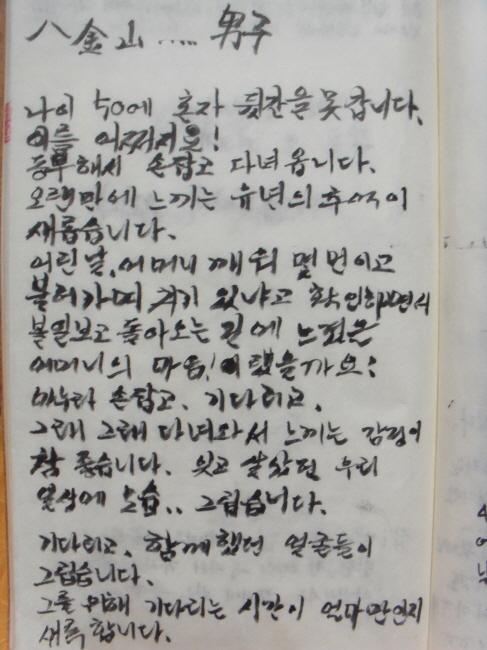 八金山..... 男子
나이 50에 혼자 뒷간을 못갑니다.
이를 어쩌지요!
동부해서 손잡고 다녀 옵니다.
오랜만에 느끼는 유년의 추억이
새롭습니다.
어린날, 어머니 깨워 몇번이고
불러가며 거기 있냐고 확인하면서
볼일보고 돌아오는 길에 느꼈은
어머니의 마음! 이랬을까요!
마누라 손잡고, 기다리고,
그래 그래 다녀와서 느끼는 감정이
참 좋습니다. 잊고 살았던 우리
일상에 모습.. 그립습니다.
기다리고, 함께했던 얼굴들이
그립습니다.
그를 위해 기다리는 시간이 얼마만인지
새록합니다.